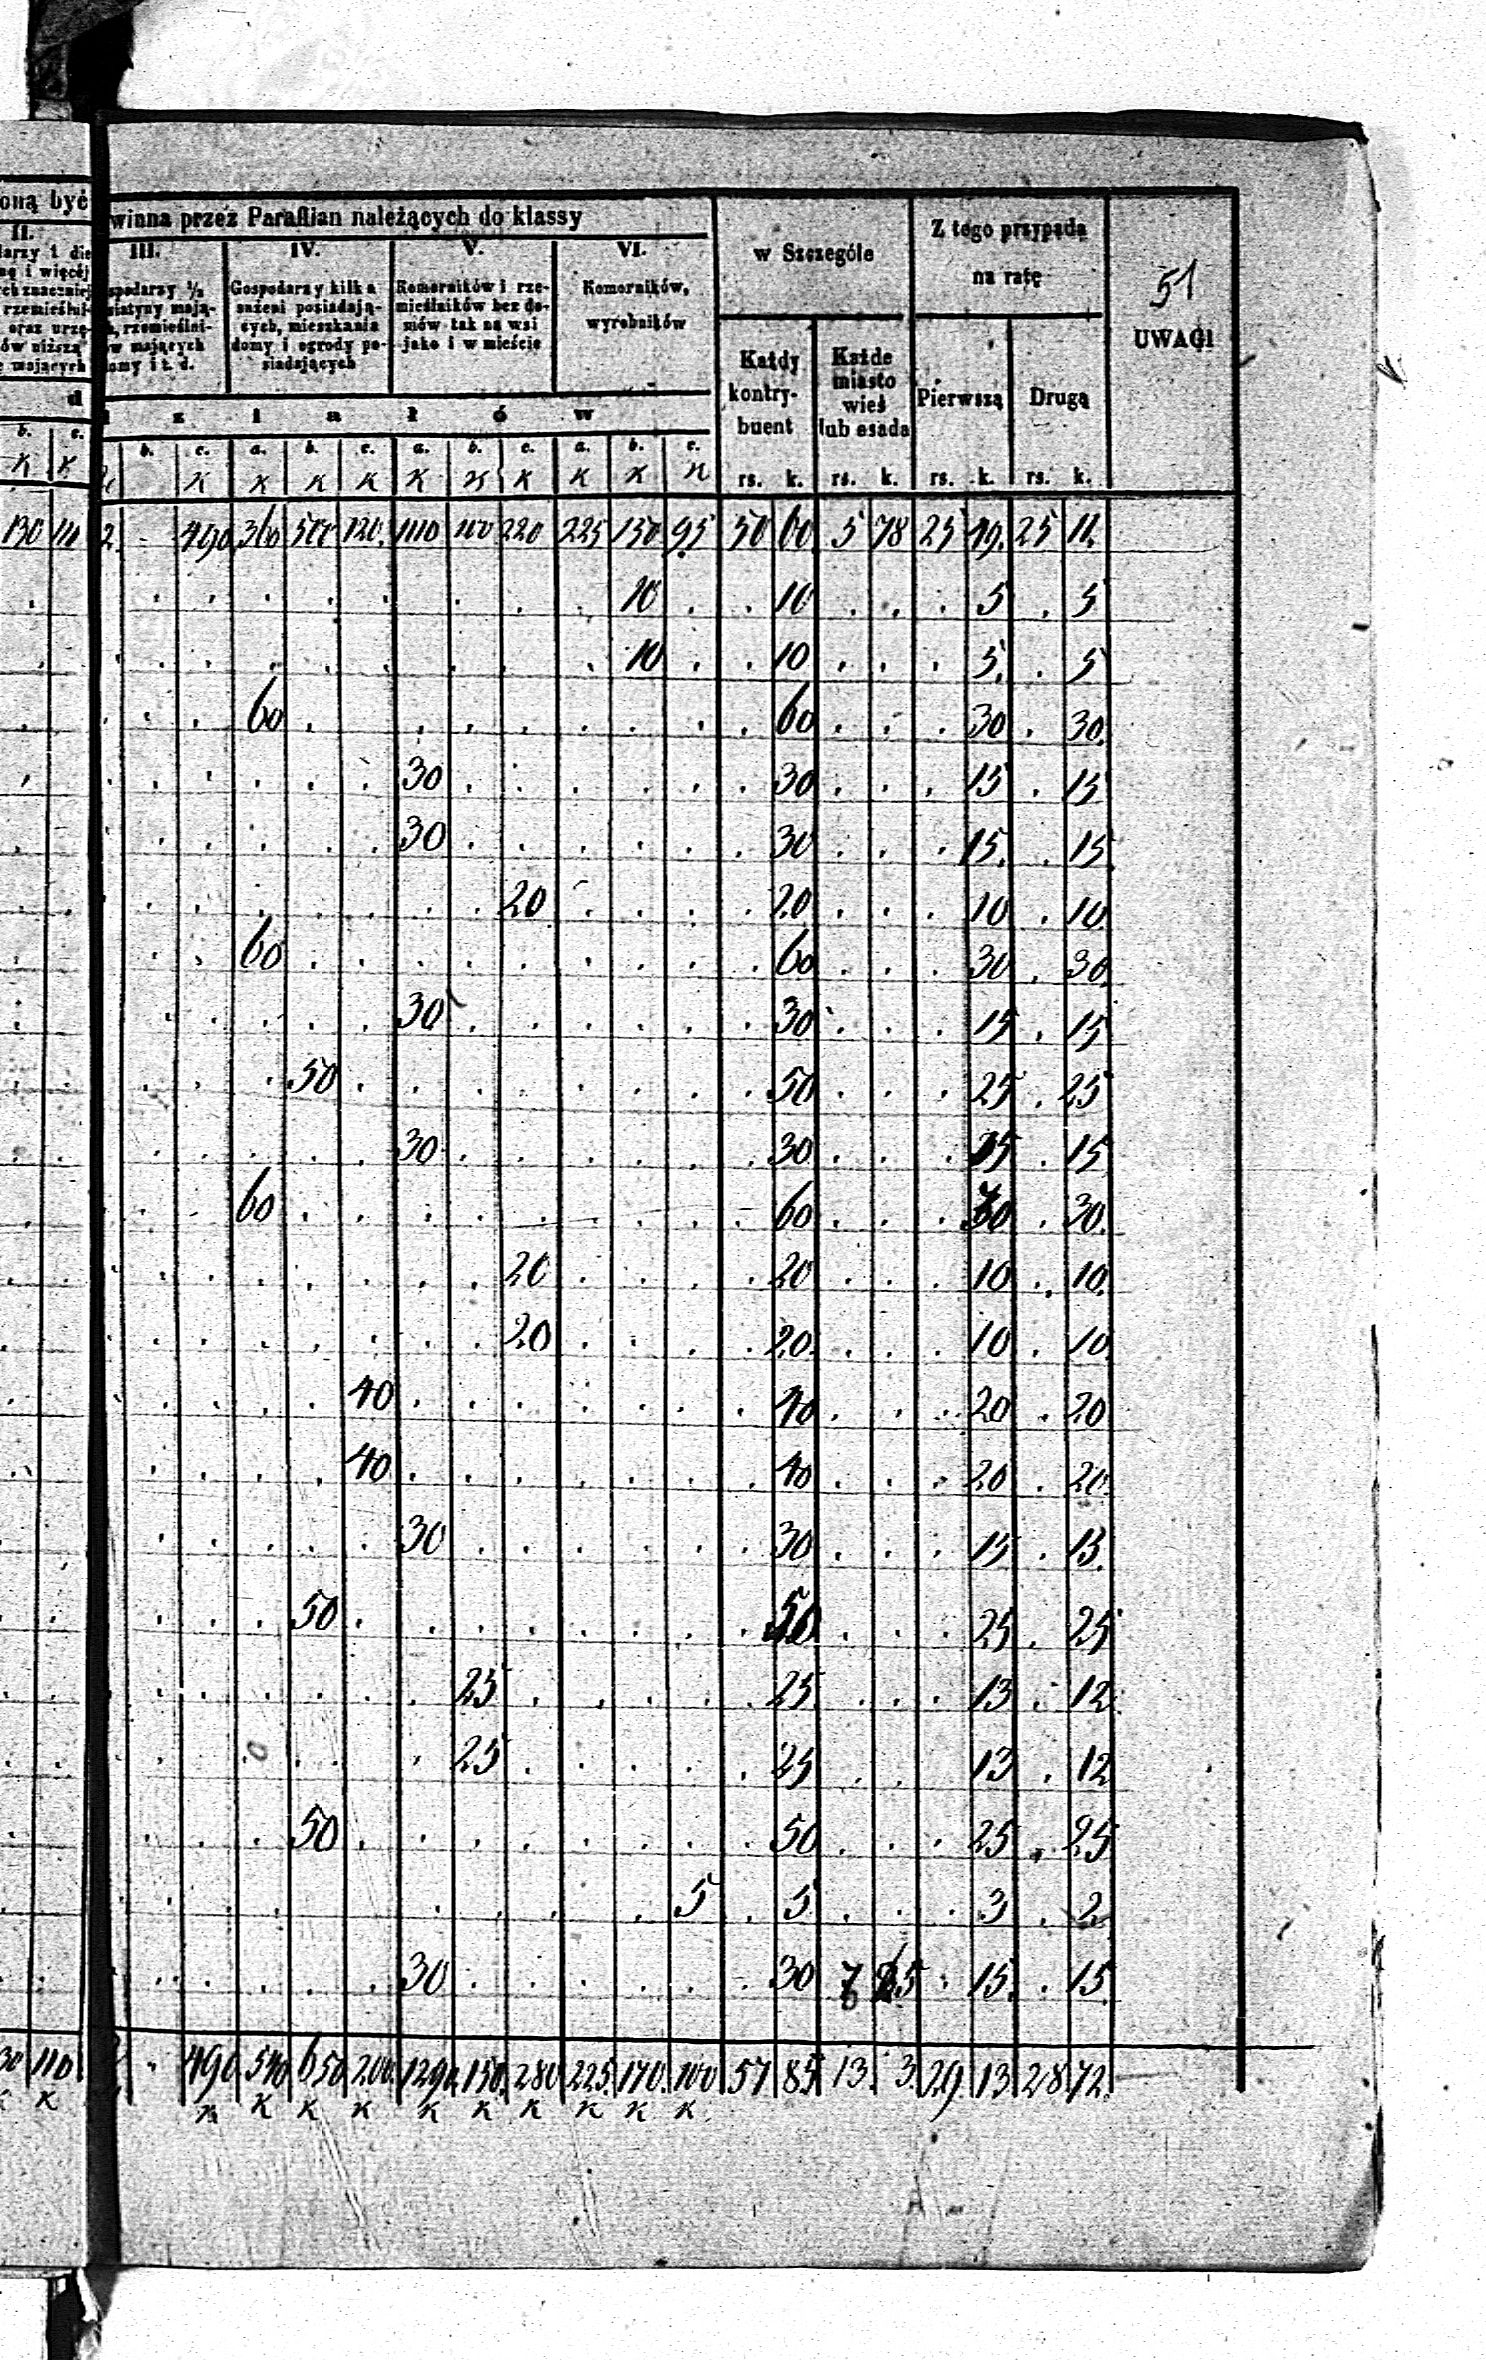 oną być
winna przez Parafian należących do klassy
w Szczególe
Z tego przypada
na ratę
51
UWAGI
II.
III.
IV.
V.
VI.
larzy i die
nę i więcéj
rch znaczniej
rzemieślni-
oraz urzę-
ów niższą
e mających
spodarzy ½
siatyny mają-
h, rzemieślni-
w mających
omy i t. d.
Gospodarzy kilka
sażeni posiadają-
cych, mieszkania
domy i ogrody po-
siadających
Komorników i rze-
mieślników bez do-
mów tak na wsi
jako i w mieście
Komorników,
wyrobników
Każdy
kontry-
buent
Każde
miasto
wieś
lub osada
Pierwszą
Drugą
d z i a ł ó w
b. c. b. c. a. b. c. a. b. c. a. b. c.
K K K K K K K K K K K K
rs. k. rs. k. rs. k. rs. k.
130 110 2. - 490 360 500 120. 1110 100 220 225 150 95 50 60 5 78 25 49. 25 11.
10 10 5 5
10 10 5. 5
60 60 30 30.
30 30 15 15
30 30 15. 15
20 20 10 10
60 60 30 30
30 30 15 15
50 50 25 25
30 30 15 15
60 60 30 30.
20 20 10 10.
20 20 10 10
40 40 20 20
40 40 20 20
30 30 15 15.
50 50 25 25
25 25 13 12
25 25 13 12
50 50 25 25
5 5 3 2
30 30 7 25 15. 15
30 110 - 490 540 650 200 1290 150. 280 225. 170. 100 57 85 13. 3. 29 13 28 72.
K K K K K K K K K K K